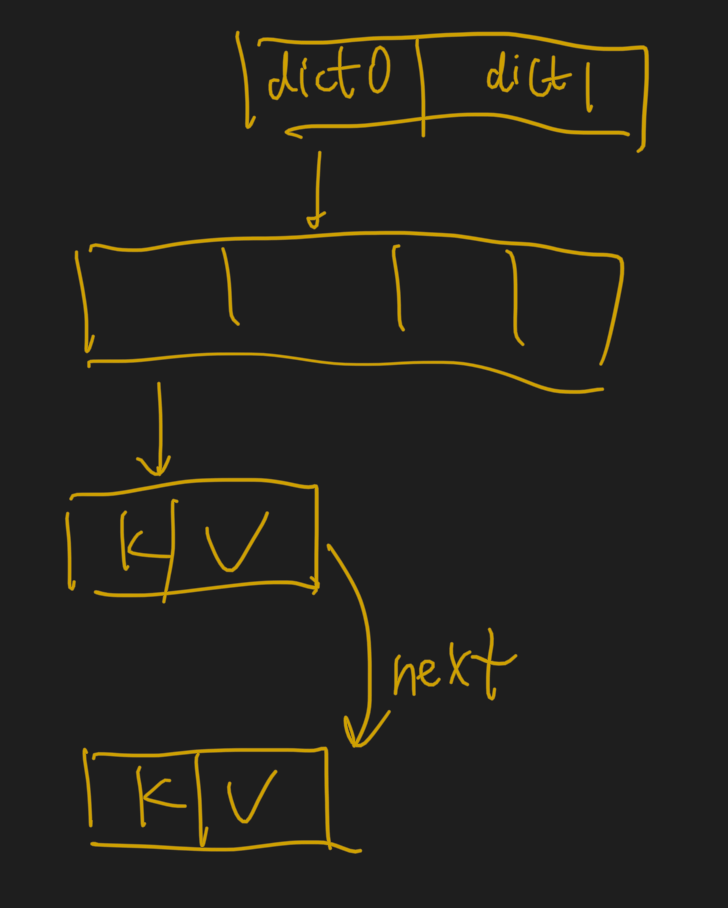 dict0 dict1
K V
next
K V